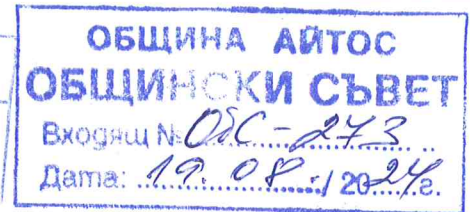 ОБЩИНА АЙТОС
ОБЩИНСКИ СЪВЕТ
Входящ № ОбС-273
Дата: 19.08./2024г.